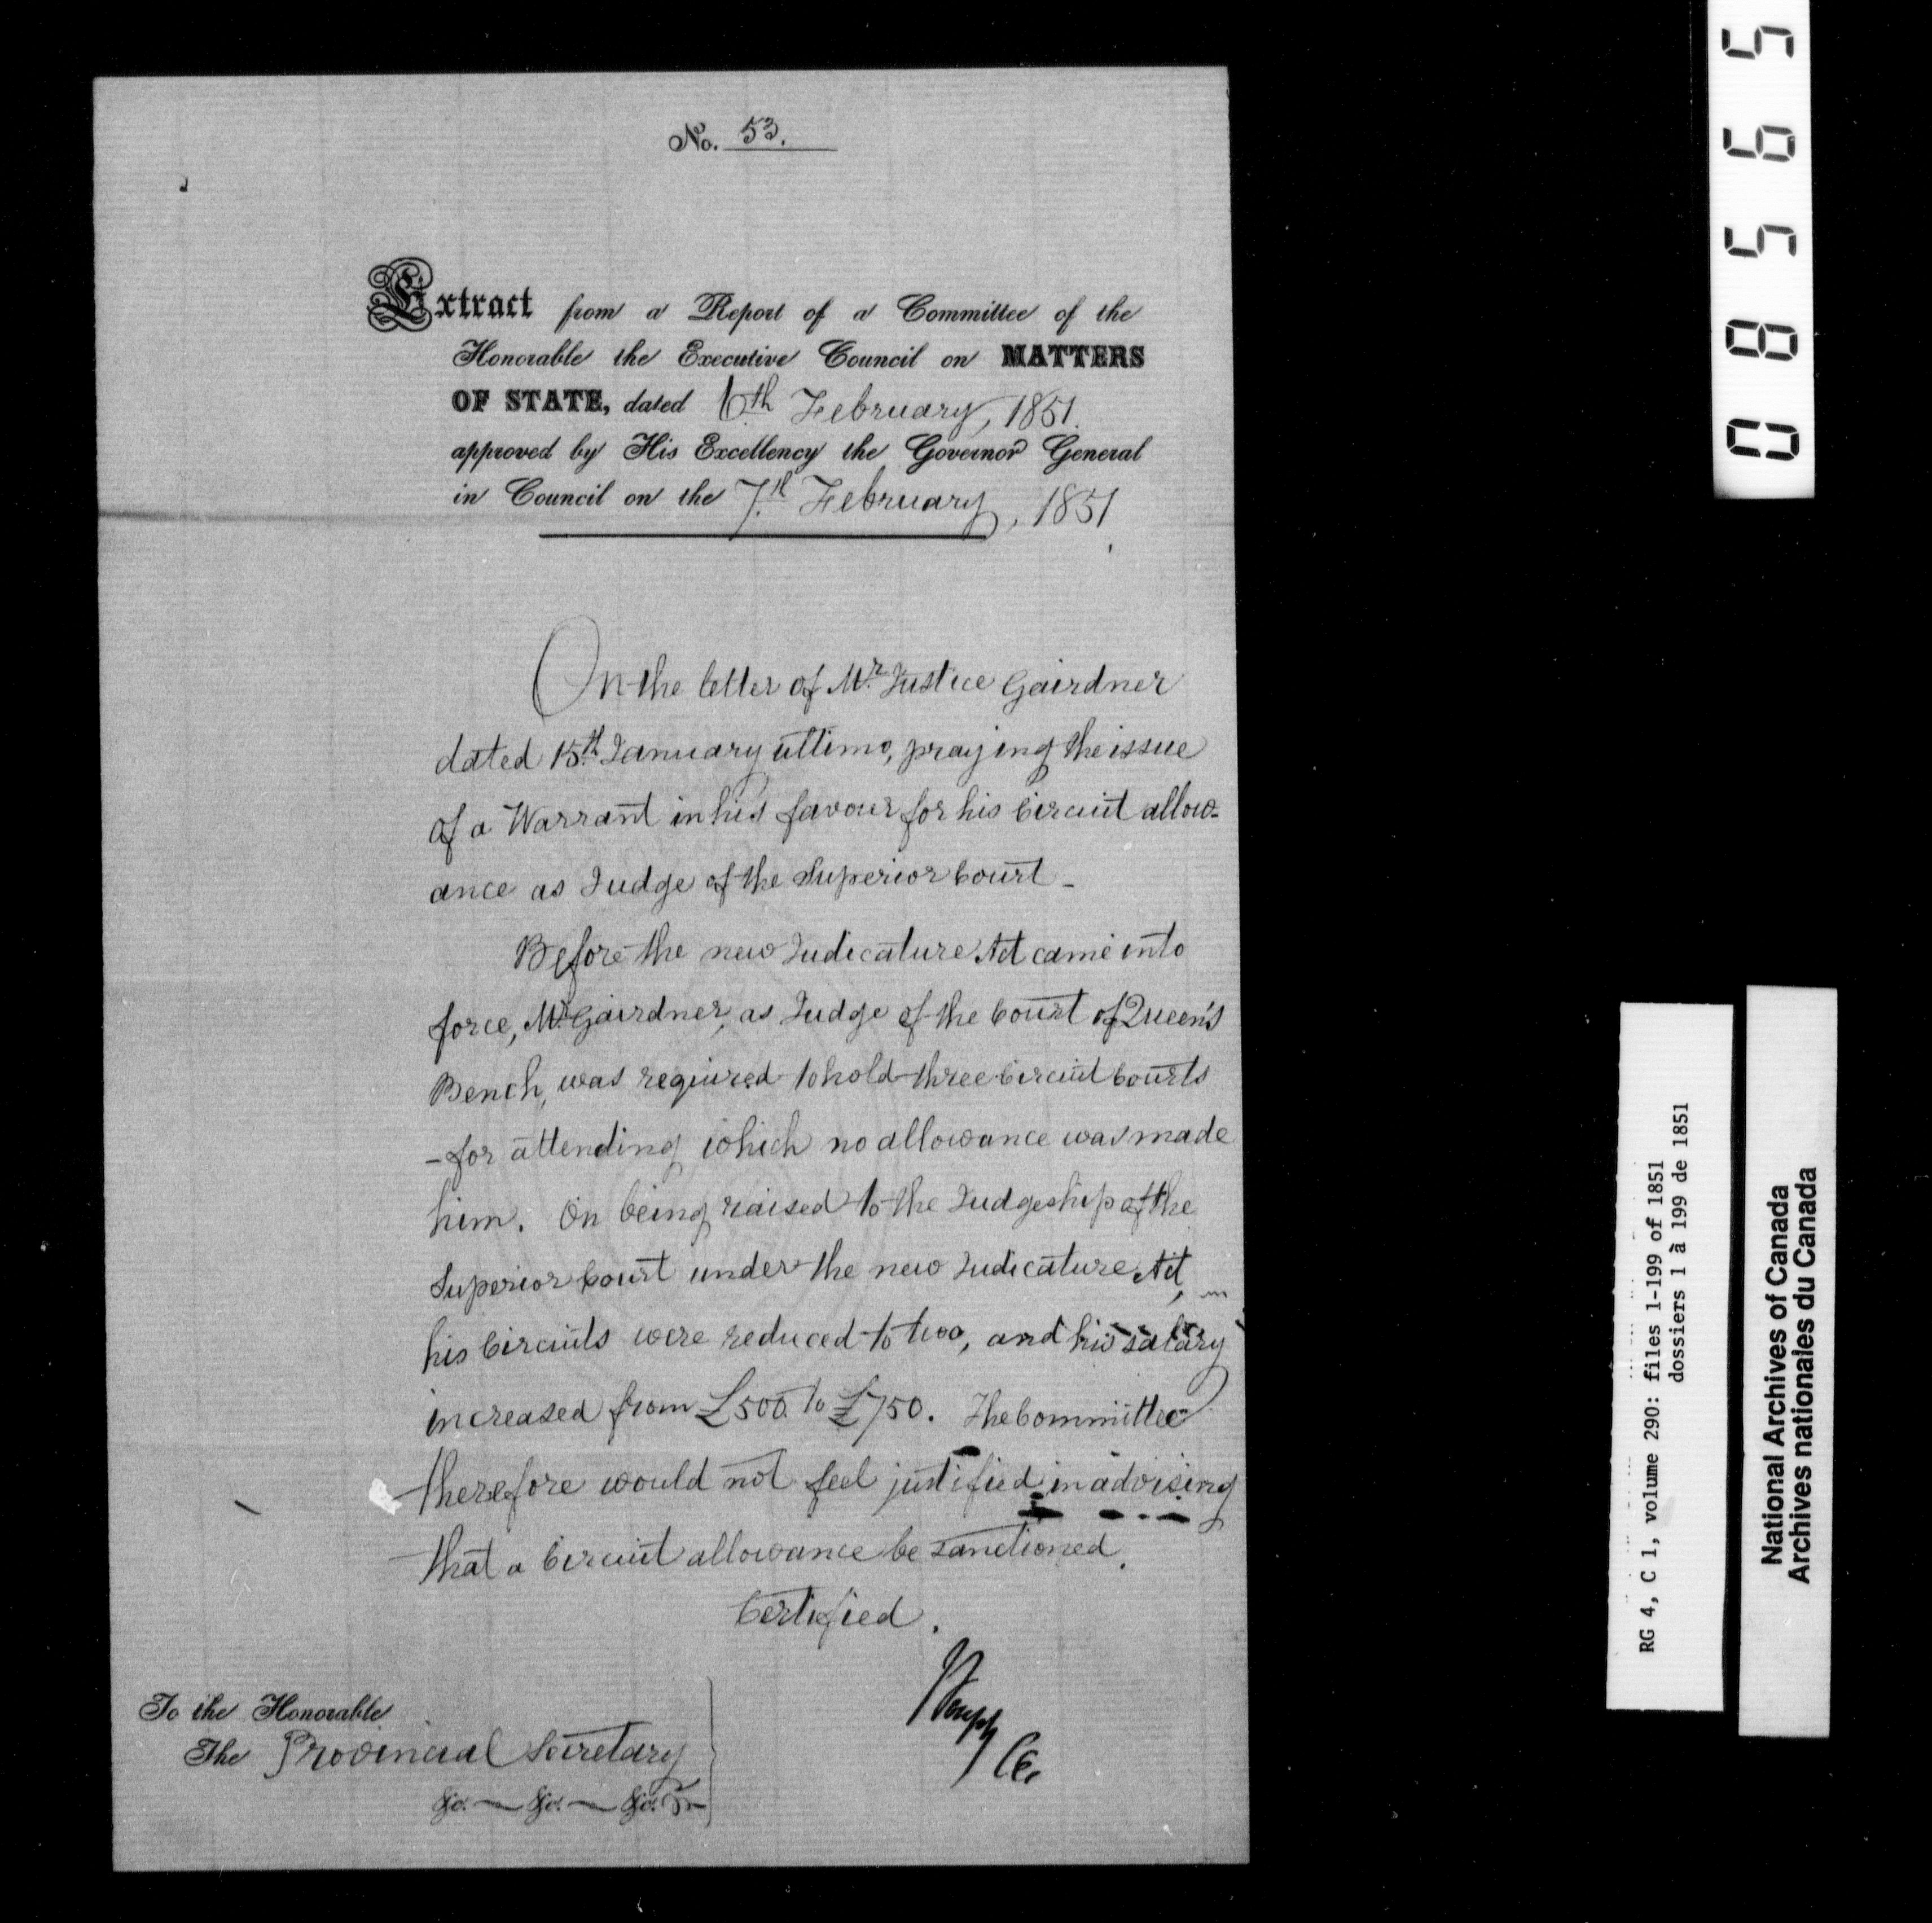 No. 53.
Extract from a Report of a Committee of the
Honorable the Executive Council on MATTERS
OF STATE, dated 6th February, 1851.
approved by His Excellency the Governor General
in Council on the 7th February, 1851
On the letter of Mr Justice Gairdner
dated 15th January ultimo, praying the issue
of a Warrant in his favour for his Circuit allow-
ance as Judge of the Superior Court –
Before the new Judicature Act came into
force, Mr Gairdner, as Judge of the Court of Queen's
Bench, was required to hold three Circuit Courts
– for attending which no allowance was made
him. On being raised to the Judgeship of the
Superior Court under the new Judicature Act,
his Circuits were reduced to two, and his salary
increased from £500 to £750. The Committee
therefore would not feel justified in advising
that a Circuit allowance be sanctioned.
Certified.
To the Honorable
The Provincial Secretary
&c. — &c. — &c.
08565
RG 4, C 1, volume 290: files 1-199 of 1851
dossiers 1 à 199 de 1851
National Archives of Canada
Archives nationales du Canada